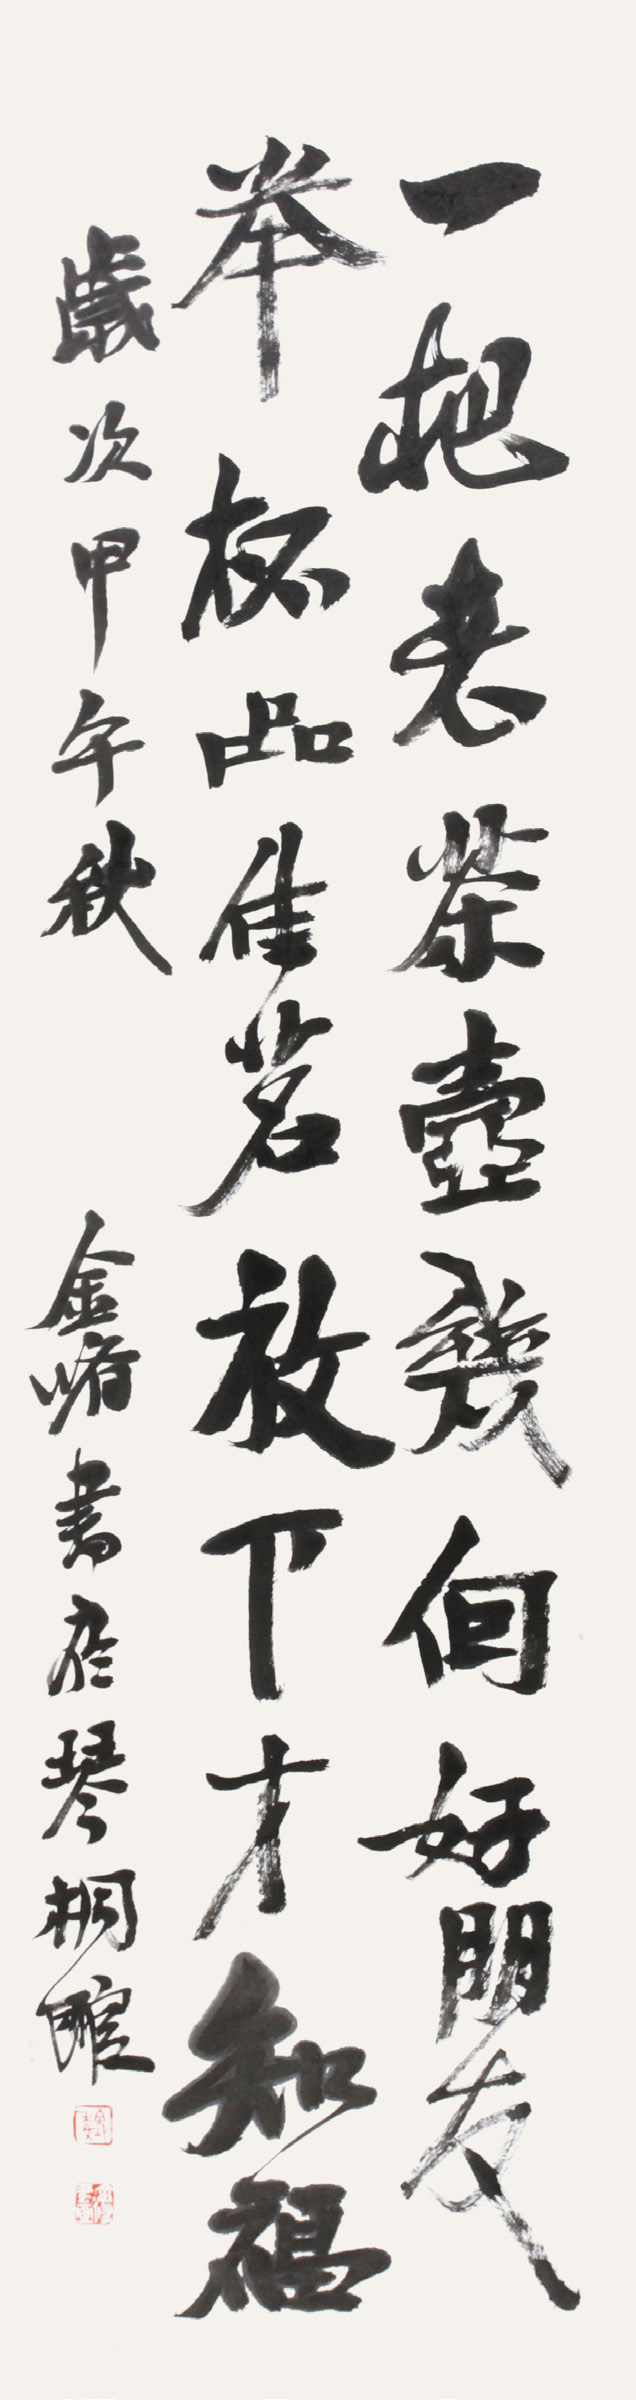 一把老茶壺幾個好朋友
举杯品佳茗放下才知福
歲次甲午秋
金 書於琴桐